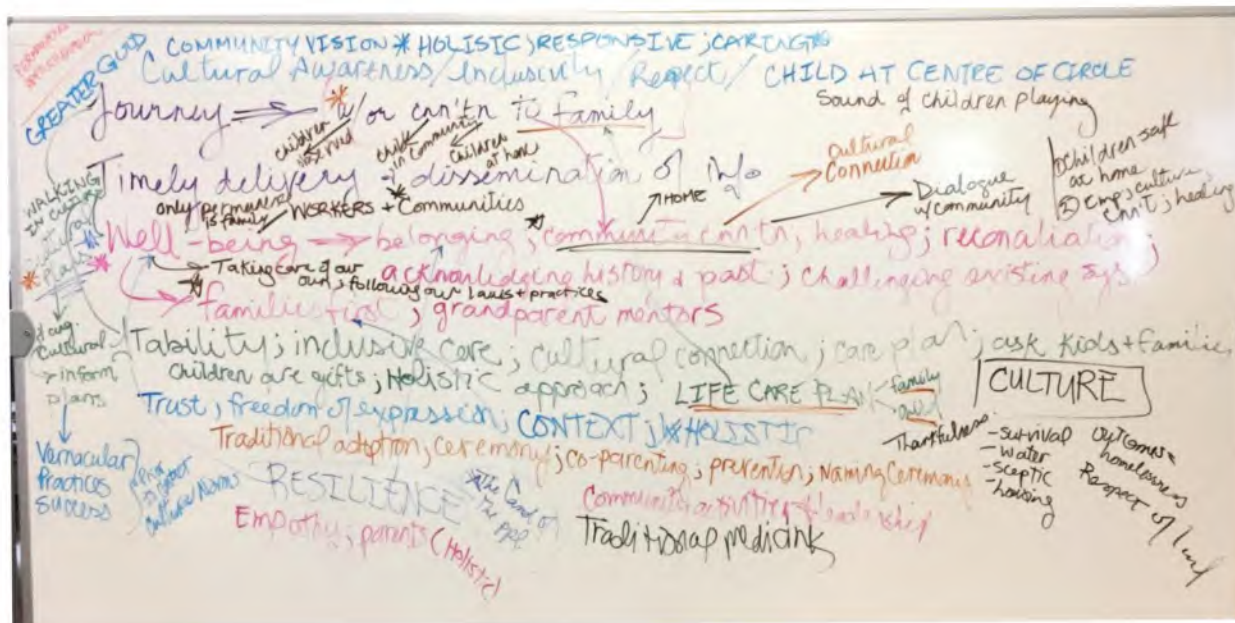 GREATER GOOD
COMMUNITY VISION * HOLISTIC; RESPONSIVE; CARING
Cultural Awareness/Inclusivity/Respect/ CHILD AT CENTRE OF CIRCLE
Sound of children playing
Journey w/or cnn'tn to family
Children observed
Child in community
Children at home
Cultural Connection
① Children safe at home
② Emp; culture; cnn't; healing
Timely delivery + dissemination of info
WALKING IN CULTURE
Cultural plans
only permanence is family
WORKERS + Communities
HOME
Dialogue w/community
Well-being belonging; community cnn'tn; healing; reconciliation;
Taking care of our own; following our laws + practices
acknowledging history & past; challenging existing sys
families first; grandparent mentors
Cultural
inform
plans
Tability; inclusive care; cultural connection; care plan; ask kids + families
Children are gifts; Holistic approach; LIFE CARE PLAN
family
CULTURE
Trust; freedom of expression; CONTEXT; HOLISTIC
Thankfulness
- survival
- water
- sceptic
- housing
outcomes
homelessness
Respect of land
Traditional adoption; ceremony; co-parenting; prevention; Naming Ceremony
Vernacular
Practices
Success
Cultural Norms
RESILIENCE
*The Land
Community activities leadership
Empathy; parents (Holistic)
Traditional medicink